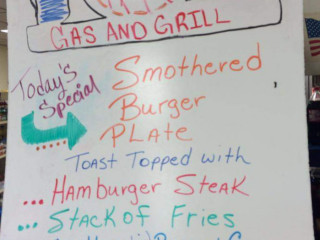 GAS AND GRILL
Today's Special
Smothered
Burger
PLate
Toast Topped with
... Hamburger Steak
... Stack of Fries